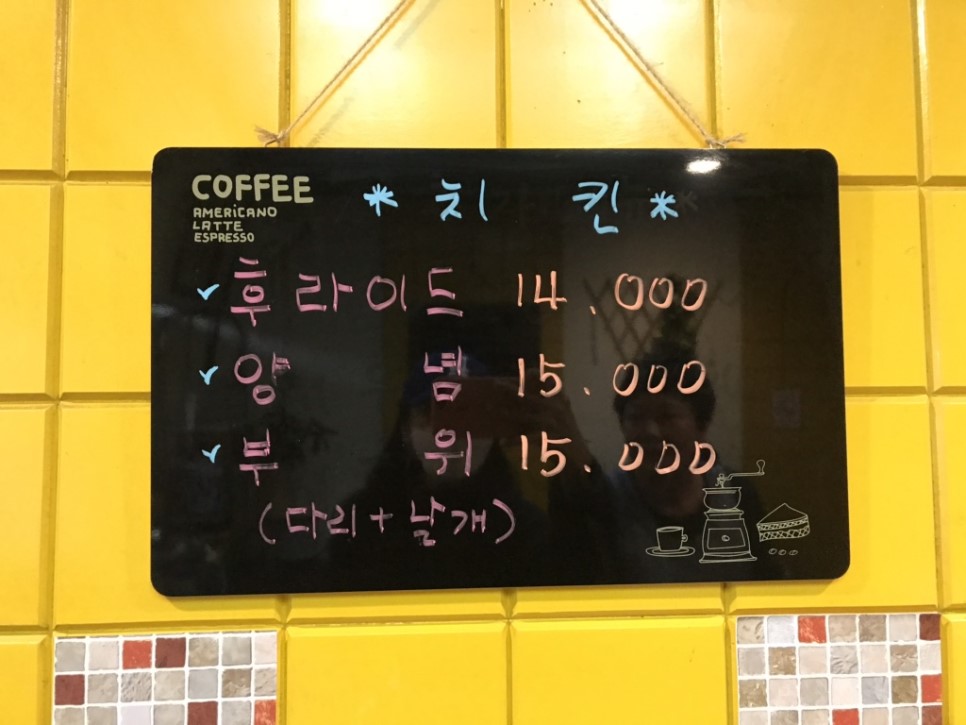 COFFEE
AMERICANO
LATTE
ESPRESSO
* 치 킨 *
✓ 후라이드 14.000
✓ 양 념 15.000
✓ 부 위 15.000
(다리+날개)